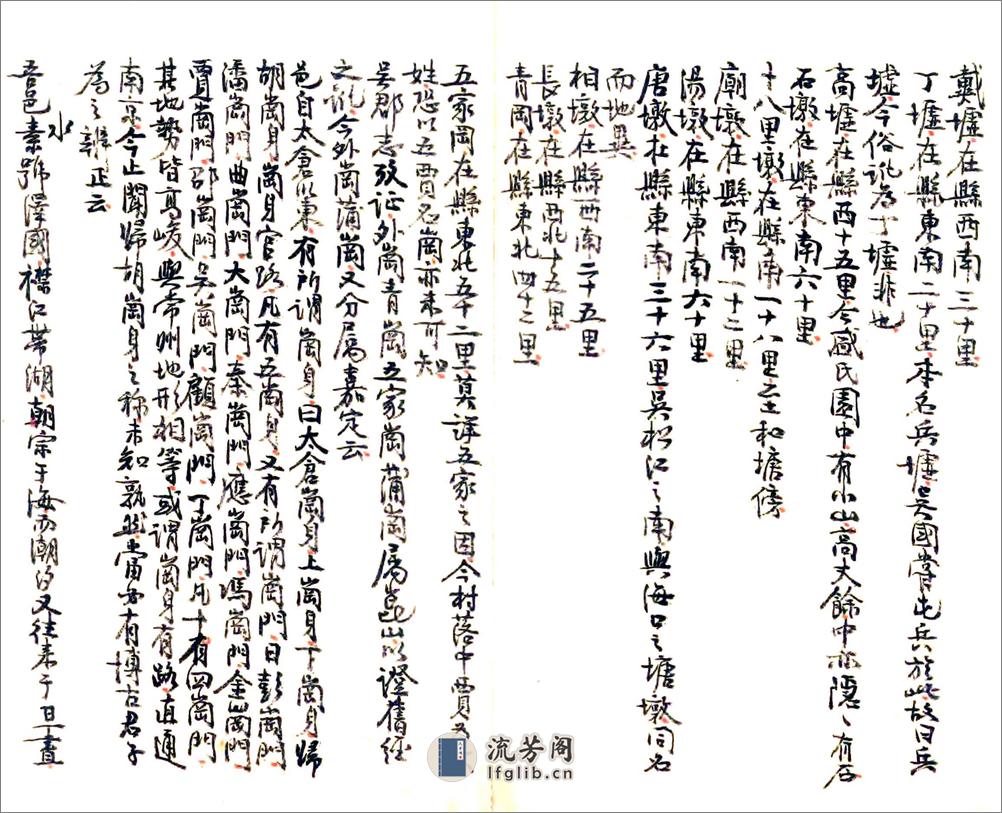 戴墟在縣西南三十里
丁墟在縣東南二十里本名兵墟吳國嘗屯兵於此故曰兵
墟今俗訛為丁墟非也
高墟在縣西十五里今盛氏園中有小山高丈餘中袮隱〻有石
石墩在縣東南六十里
十八里墩在縣南一十八里至和塘傍
廟墩在縣西南一十二里
湯墩在縣東南六十里
唐墩在縣東南三十六里吳松江之南與海口之塘墩同名
而地異
相墩在縣西南二十五里
長墩在縣西北十五里
青岡在縣東北四十二里
五家岡在縣東北五十二里莫詳五家之因今村落中賈
姓恐以五賈名崗亦未可知
吳郡志攷证外崗青崗五家崗蒲崗屬崑山以證舊經
之訛今外崗蒲崗又分屬嘉定云
邑自太倉以東有所謂崗身曰太倉崗身上崗身下崗身歸
胡崗身崗身官路凡有五崗身又有所謂崗門曰彭崗門
潘崗門曲崗門大崗門秦崗門應崗門馮崗門金崗門
賈崗門邵崗門吳崗門顧崗門丁崗門凡十有四崗門
其地勢皆高峻與常州地形相等或謂崗身有路直通
南京今止聞歸胡崗身之称未知孰是當必有博古君子
為之辯正云
水
吾邑素號澤國襟江帶湖朝宗于海而潮汐又往來于旦晝
流芳阁
lfglib.cn